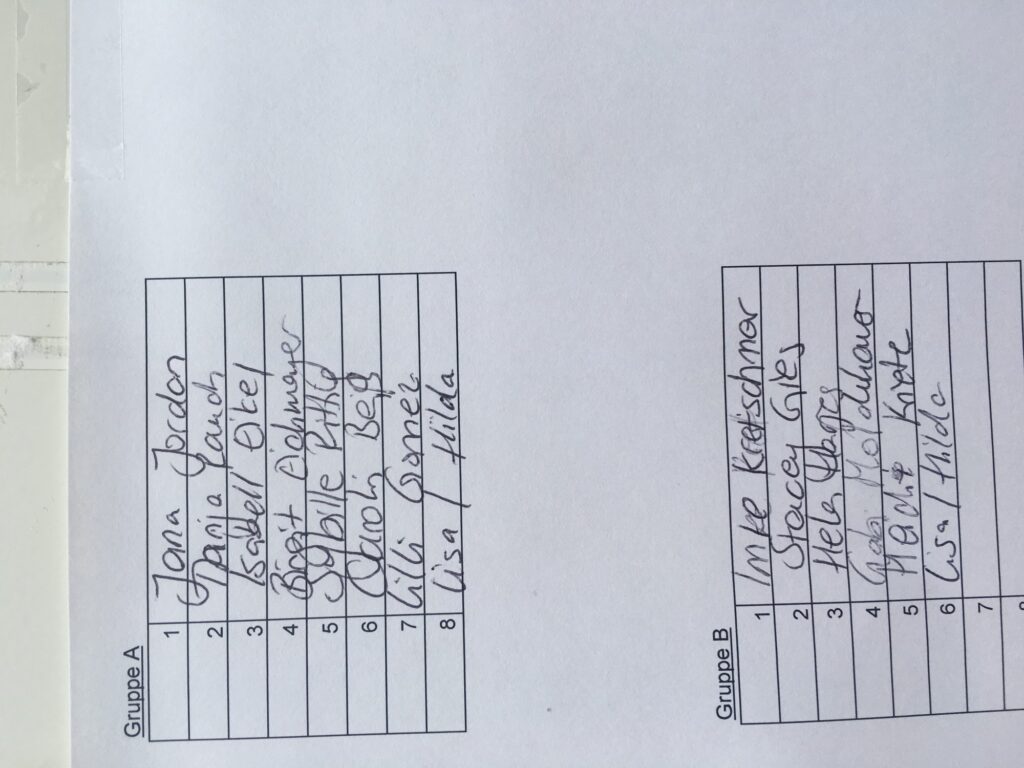 Gruppe A
1 Jana Jordan
2 Tanja Rauch
3 Isabell Eitel
4 Birgit Eichmayer
5 Sybille
6 Carolin Beiß
7 Lilli Gomez
8 Lisa / Hilda
Gruppe B
1 Imke Kretschmar
2 Stacey Gies
3 Hela
4 Gabi
5 Knote
6 Lisa / Hilda
7
8